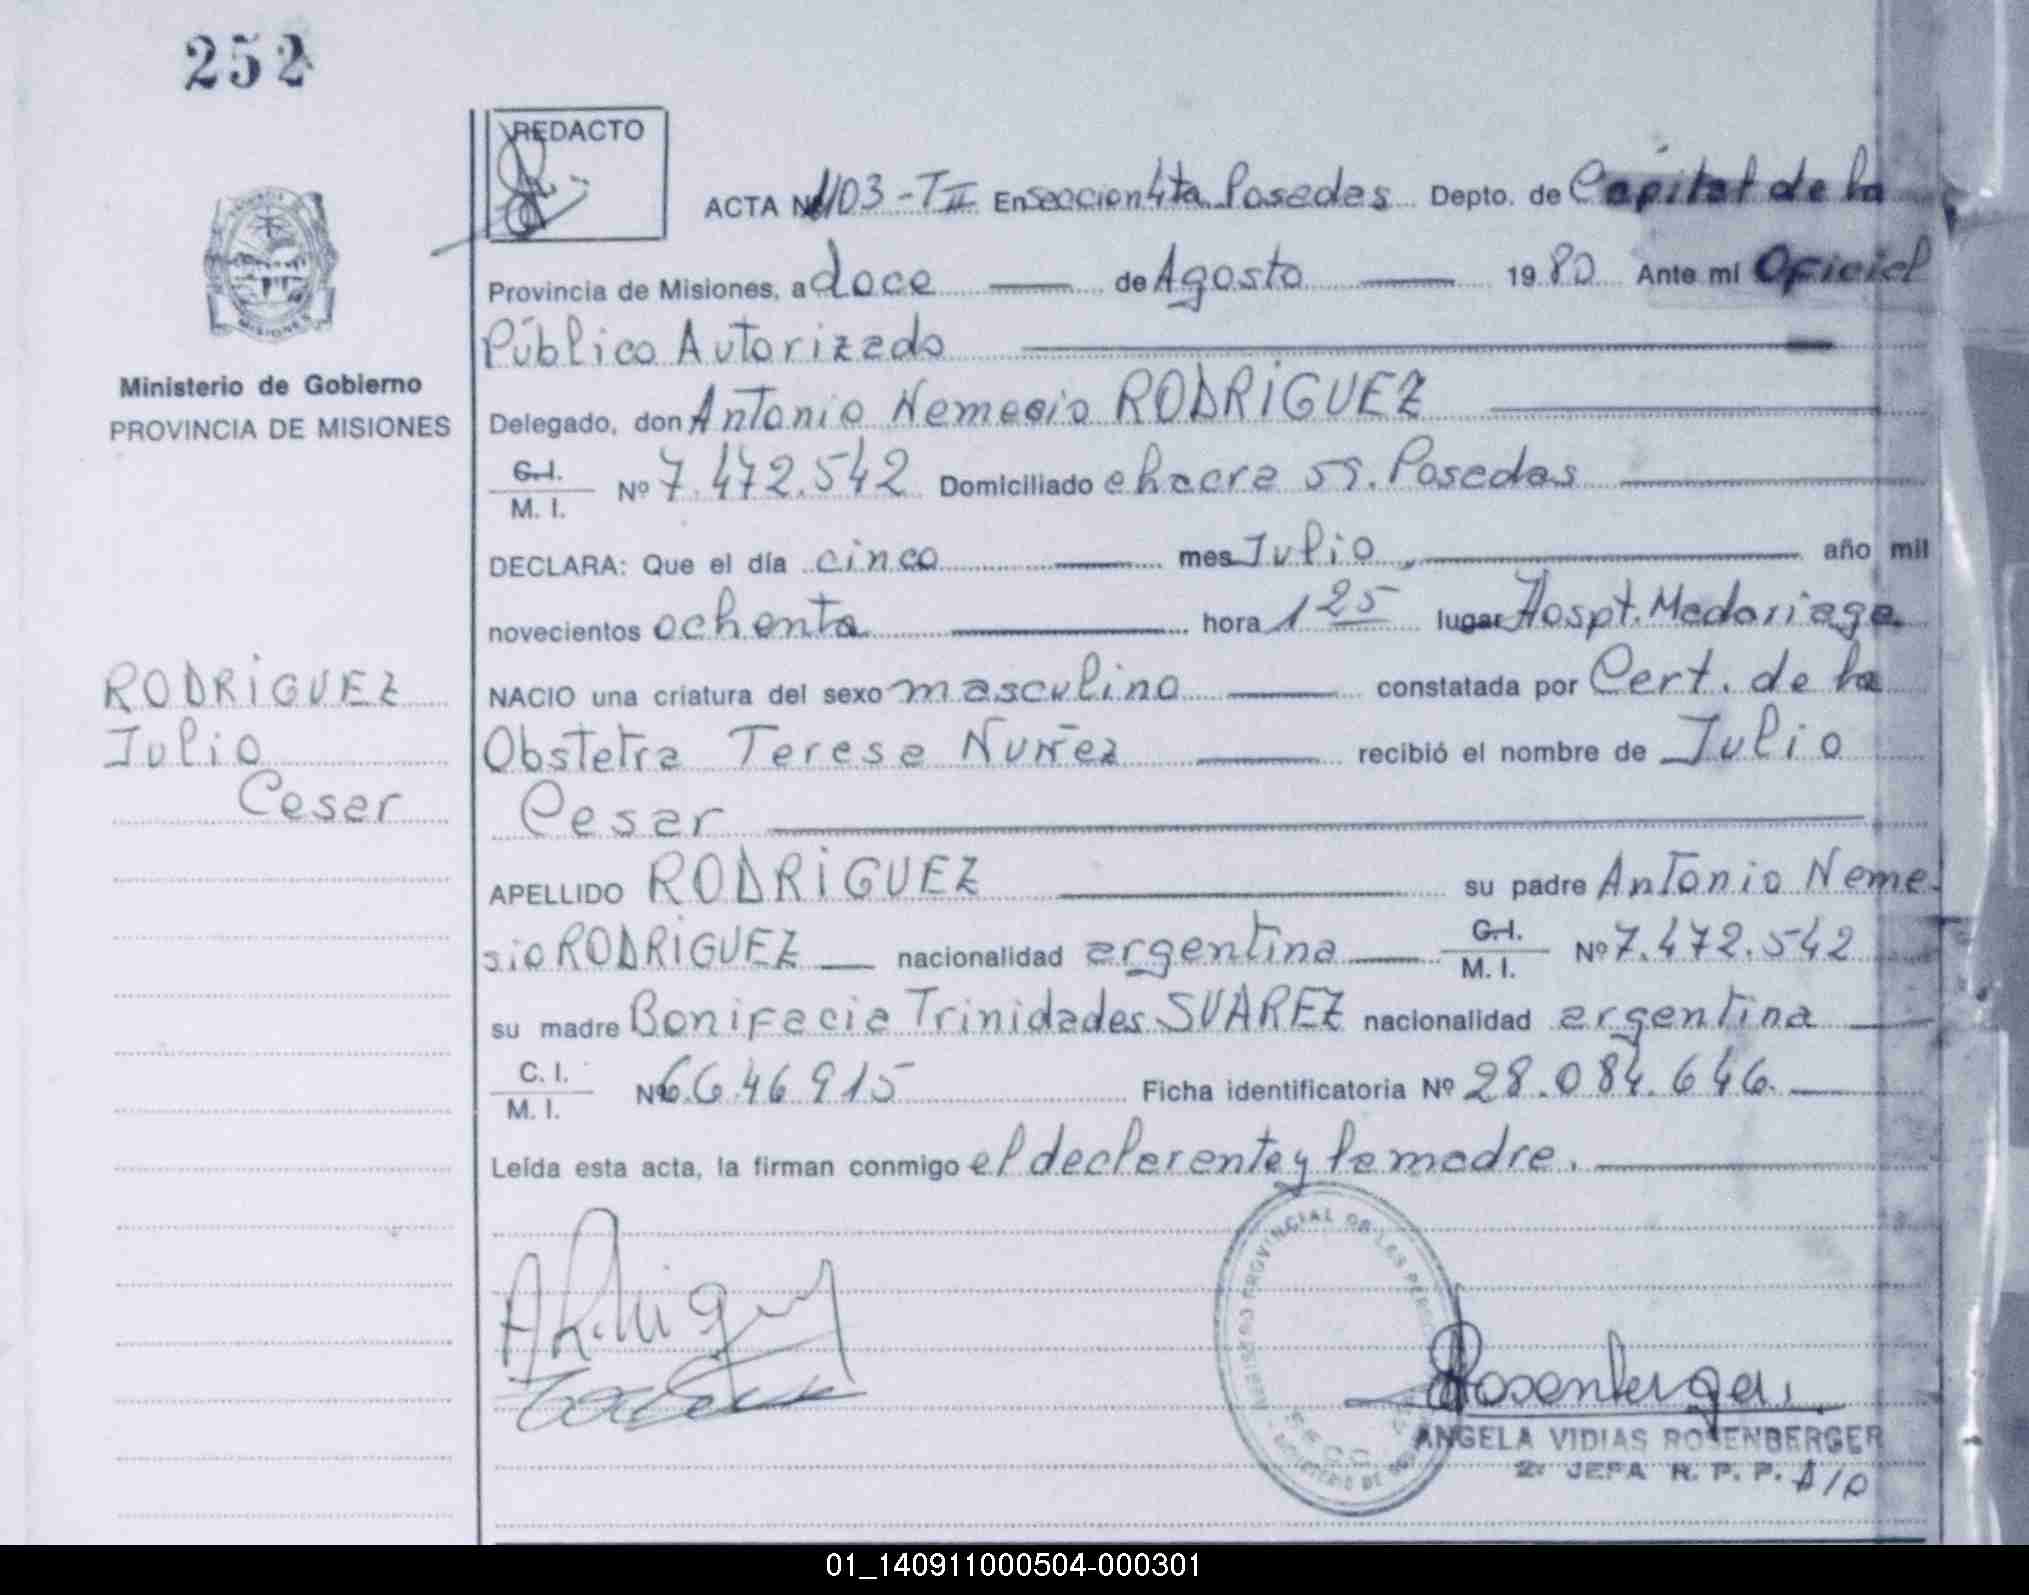 252
REDACTO
ACTA Nº 1103-TII En seccion 4ta. Posadas Depto. de Capital de la
Provincia de Misiones, a doce de Agosto 1980 Ante mí Oficial
Público Autorizado
Delegado, don Antonio Nemesio RODRIGUEZ
C.I.
M. I. Nº 7.472.542 Domiciliado chacra 55. Posadas
DECLARA: Que el día cinco mes Julio, año mil
novecientos ochenta hora 1 25 lugar Hospt. Madariaga
NACIO una criatura del sexo masculino constatada por Cert. de la
Obstetra Teresa Nuñez recibió el nombre de Julio
Cesar
APELLIDO RODRIGUEZ su padre Antonio Neme-
sio RODRIGUEZ nacionalidad argentina C.I. M. I. Nº 7.472.542
su madre Bonifacia Trinidades SUAREZ nacionalidad argentina
C. I.
M. I. Nº 6.646.915 Ficha identificatoria Nº 28.084.646.
Leída esta acta, la firman conmigo el declarante y la madre.
MISIONES
Ministerio de Gobierno
PROVINCIA DE MISIONES
RODRIGUEZ
Julio
Cesar
REGISTRO PROVINCIAL DE LAS
MINISTERIO DE
Rosenberger
ANGELA VIDIAS ROSENBERGER
2º JEFA R. P. P. A/D
01_140911000504-000301